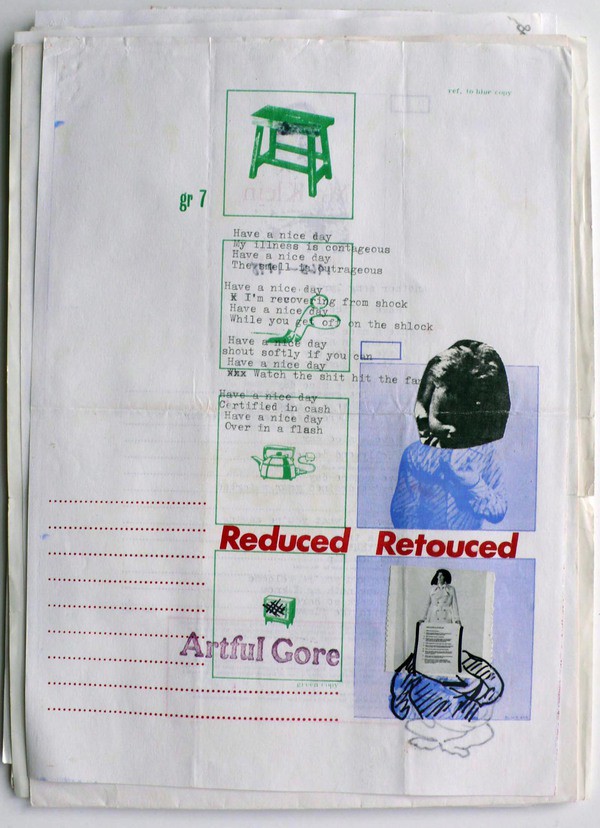 ref. to blue copy
gr 7
Have a nice day
My illness is contageous
Have a nice day
The smell is outrageous
Have a nice day
X I'm recovering from shock
Have a nice day
While you get off on the shlock
Have a nice day
shout softly if you can
Have a nice day
XXX Watch the shit hit the fan
Have a nice day
Certified in cash
Have a nice day
Over in a flash
Reduced Retouced
Artful Gore
green copy